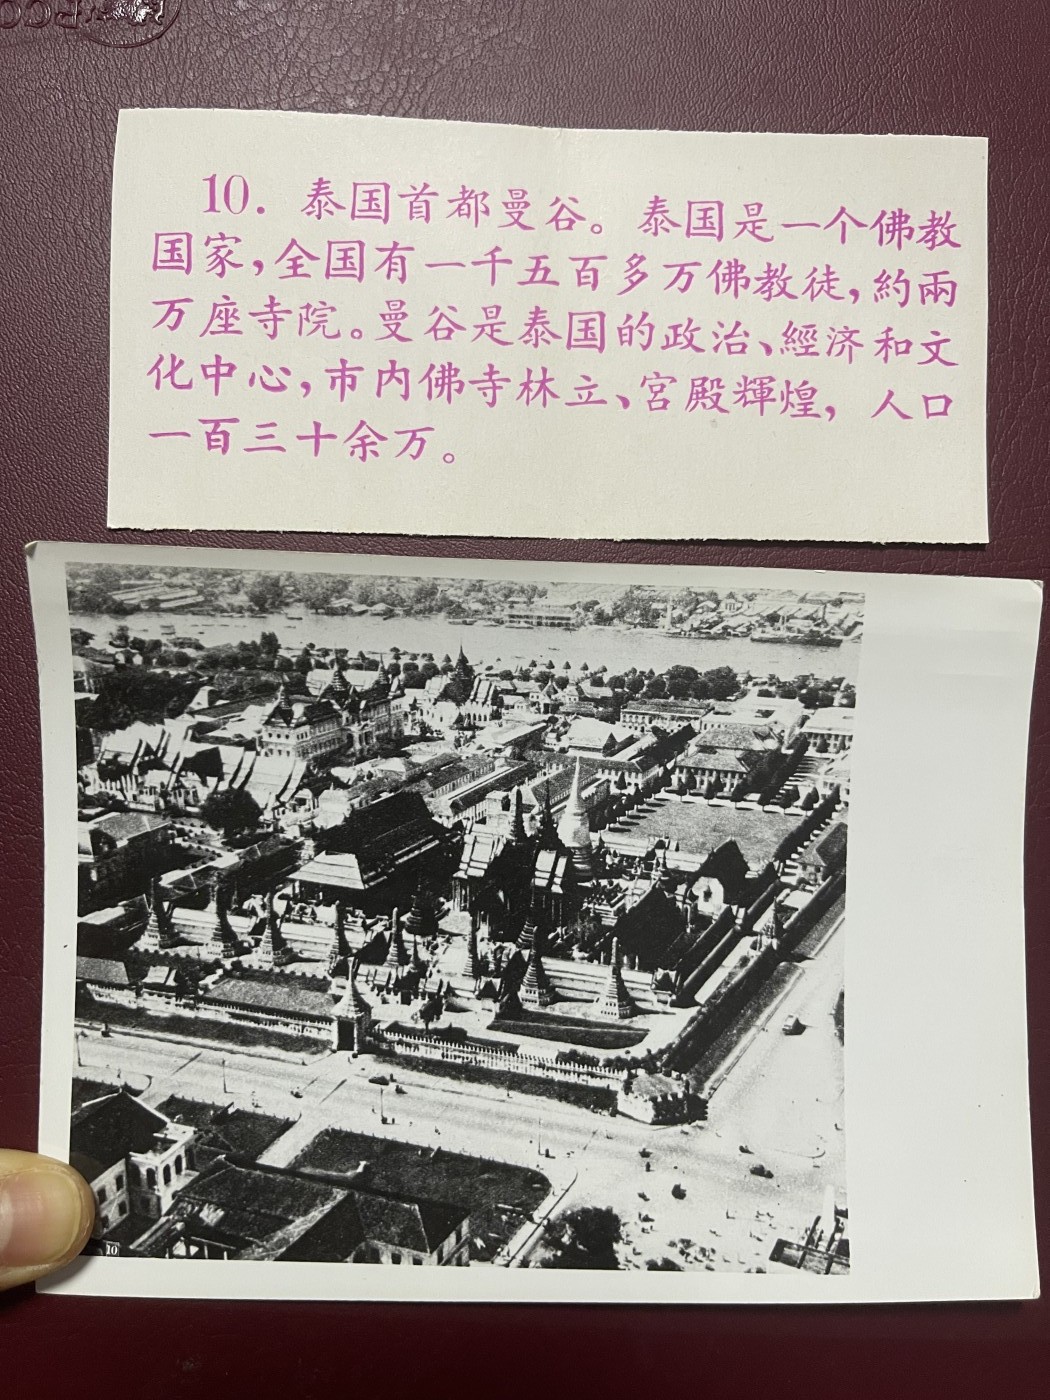 10. 泰国首都曼谷。泰国是一个佛教
国家，全国有一千五百多万佛教徒，約兩
万座寺院。曼谷是泰国的政治、經济和文
化中心，市内佛寺林立、宮殿輝煌，人口
一百三十余万。
10